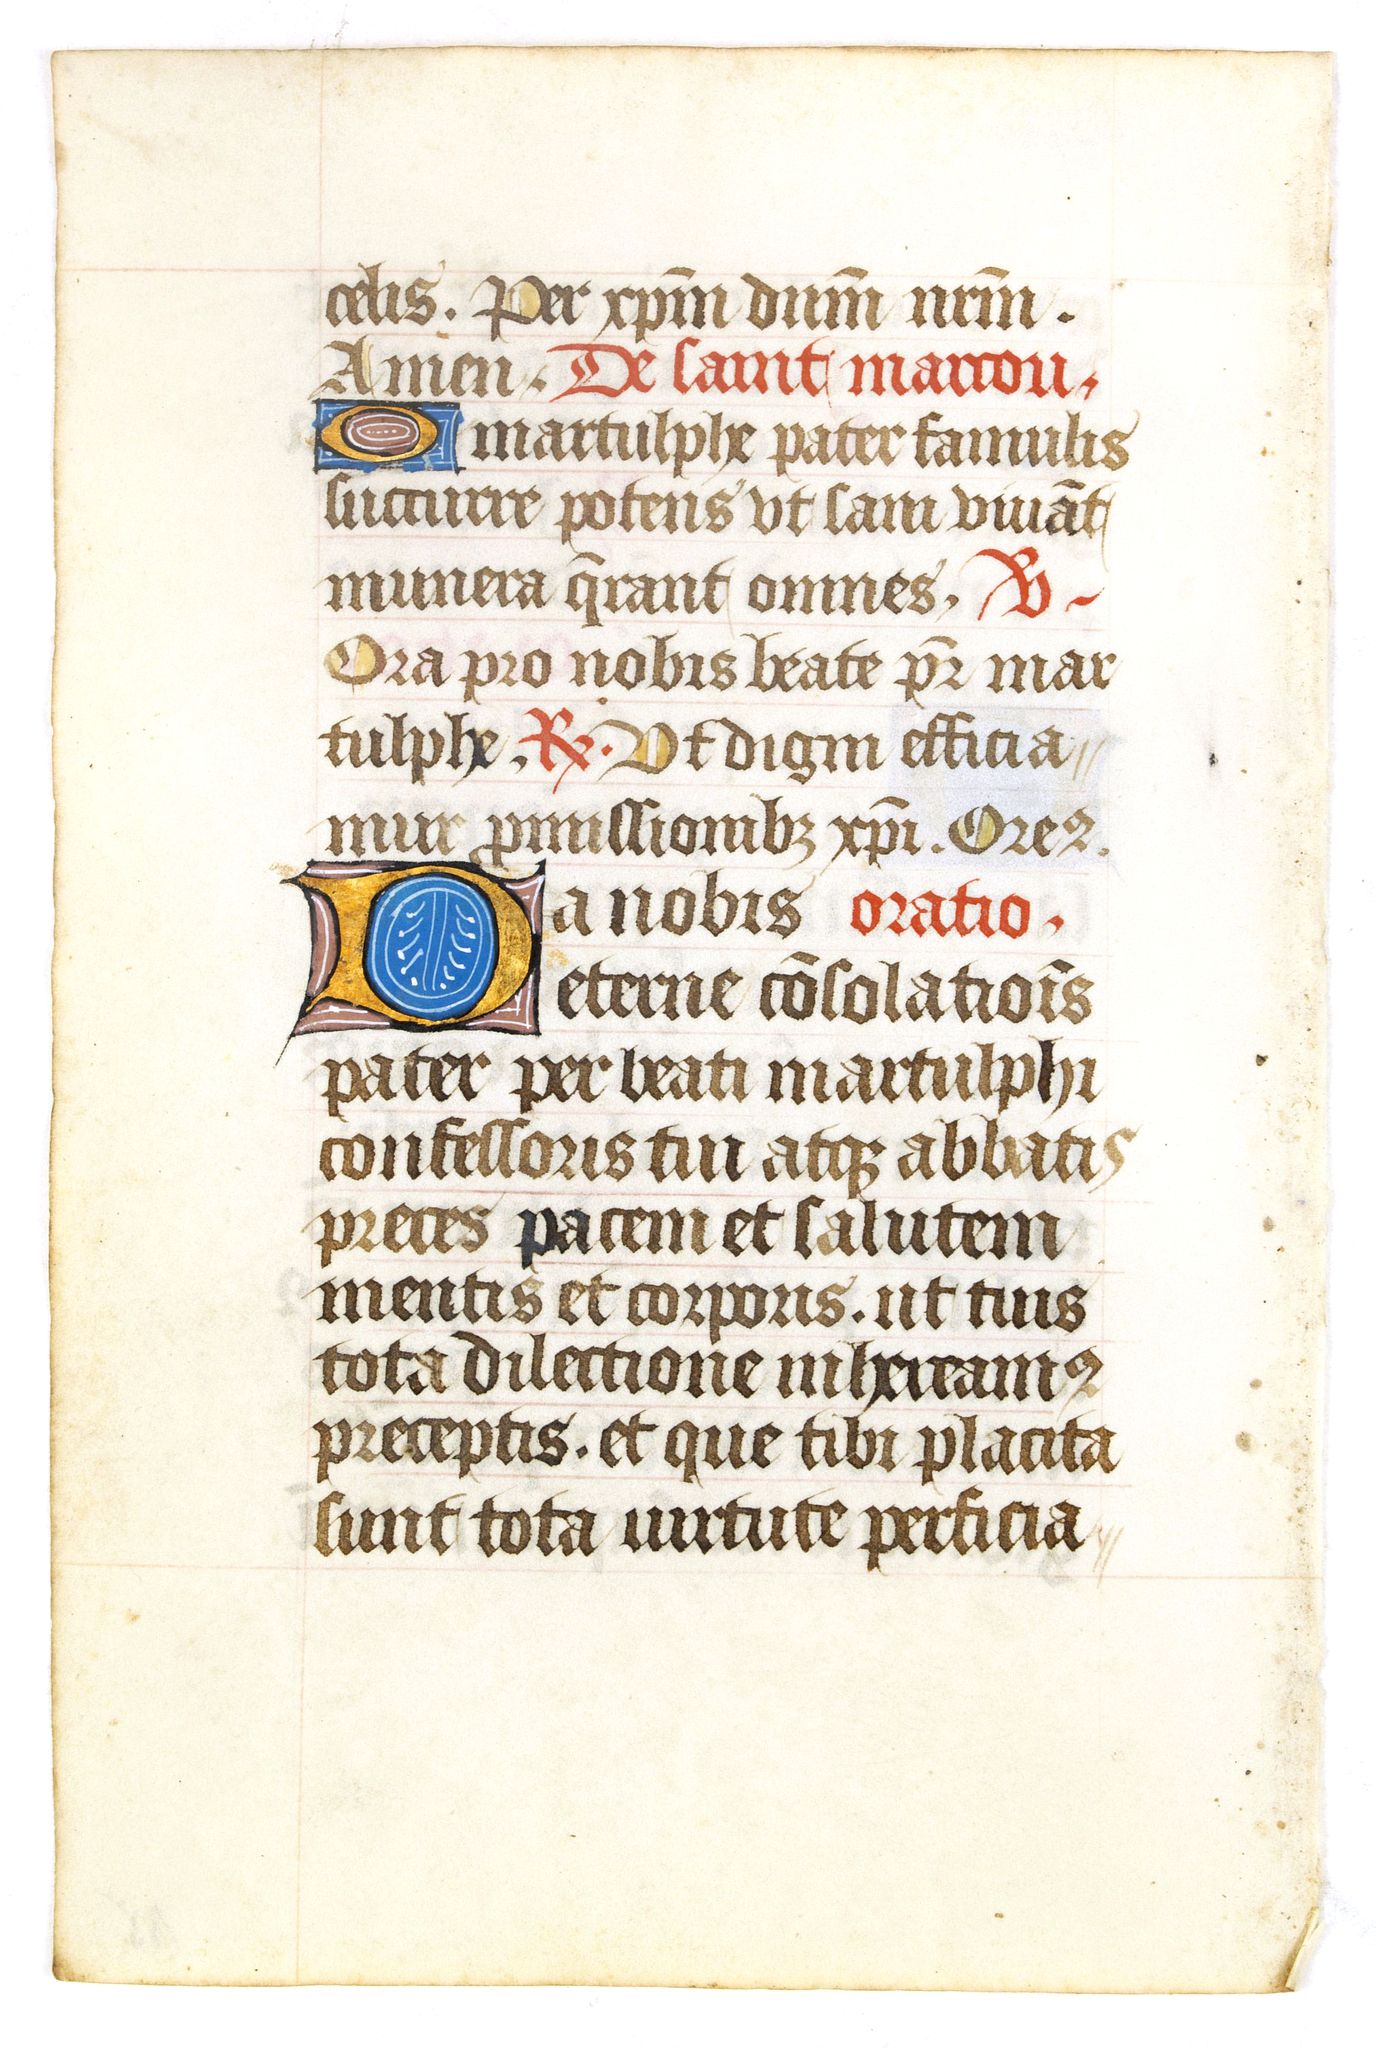 celis. Per xp̄m dnm̄ nrm̄.
Amen. De saint marcou.
O martulphe pater famulis
succurre potens vt sani viuāt
munera q̄rant omnes. V
Ora pro nobis beate pr̄ mar
tulphe. R. Vt digni efficia
mur ꝓmissionibꝫ xp̄i. Oreꝰ.
Da nobis oratio.
eterne cōsolatiōis
pater per beati martulphi
confessoris tui atqꝫ abbatis
preces pacem et salutem
mentis et corporis. ut tuis
tota dilectione inhereamꝰ
preceptis. et que tibi placita
sunt tota uirtute perficia